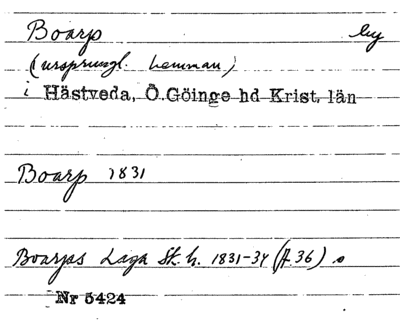 Boarp by
(ursprungl. hemman)
i Hästveda, Ö.Göinge hd Krist. län
Boarp 1831
Boarps Laga Sk. h. 1831-34 (A 36) s
Nr 5424